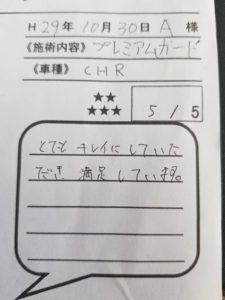 H 29年 10月 30日 A 様
《施術内容》プレミアムガード
《車種》 CHR
★★
★★★
5 / 5
とても キレイにしていた
だき 満足 しています。